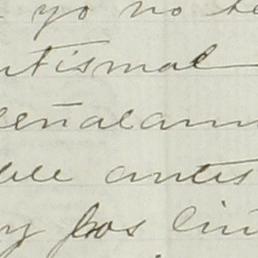 yo no te
utismal
eñalam
ble antes
y los lin